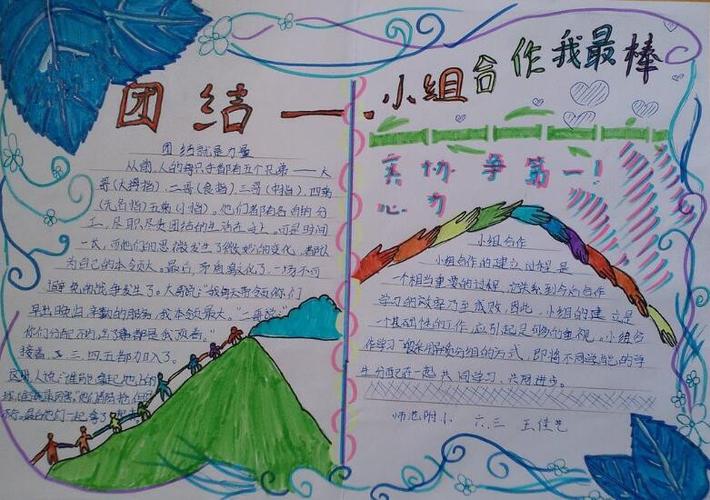 团结——小组合作我最棒
团结就是力量
从前,人的每只手都有五个兄弟——大
哥(大拇指)、二哥(食指)三哥(中指)、四弟
(无名指)五弟(小指)。他们都有各自的分
工,尽职尽责团结的生活在
一大,而他们的思微发生了微妙的变化,都认
为自己的本领大。最后,矛盾激化了,一场不可
避免的战争发生了。大哥说:"我每天带领你们
早出晚归,辛勤的服务,我本领最大。"二哥说:"
你们分配不均,出了事都是我顶着。"
接着,三、四五都加入了。
齐心协力争第一!
小组合作
小组合作的建立过程是
一个相当重要的过程,它关系到今后合作
学习的效率乃至成败。因此,小组的建立是
一个基础性的工作,应引起足够的重视。小组合
作学习要采用异质分组的方式,即将不同学能的学
生分配在一起共同学习,共同进步。
师范附小 六、三 王佳艺